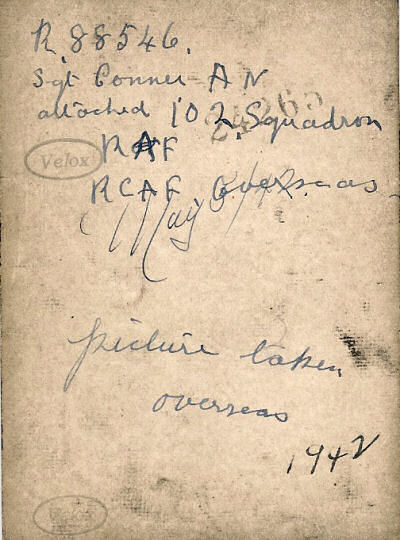 R.88546.
Sgt Conner A N
24265
attached 102 Squadron
Velox
RAF
RCAF Overseas.
May /42
picture taken
overseas
1942
Velox